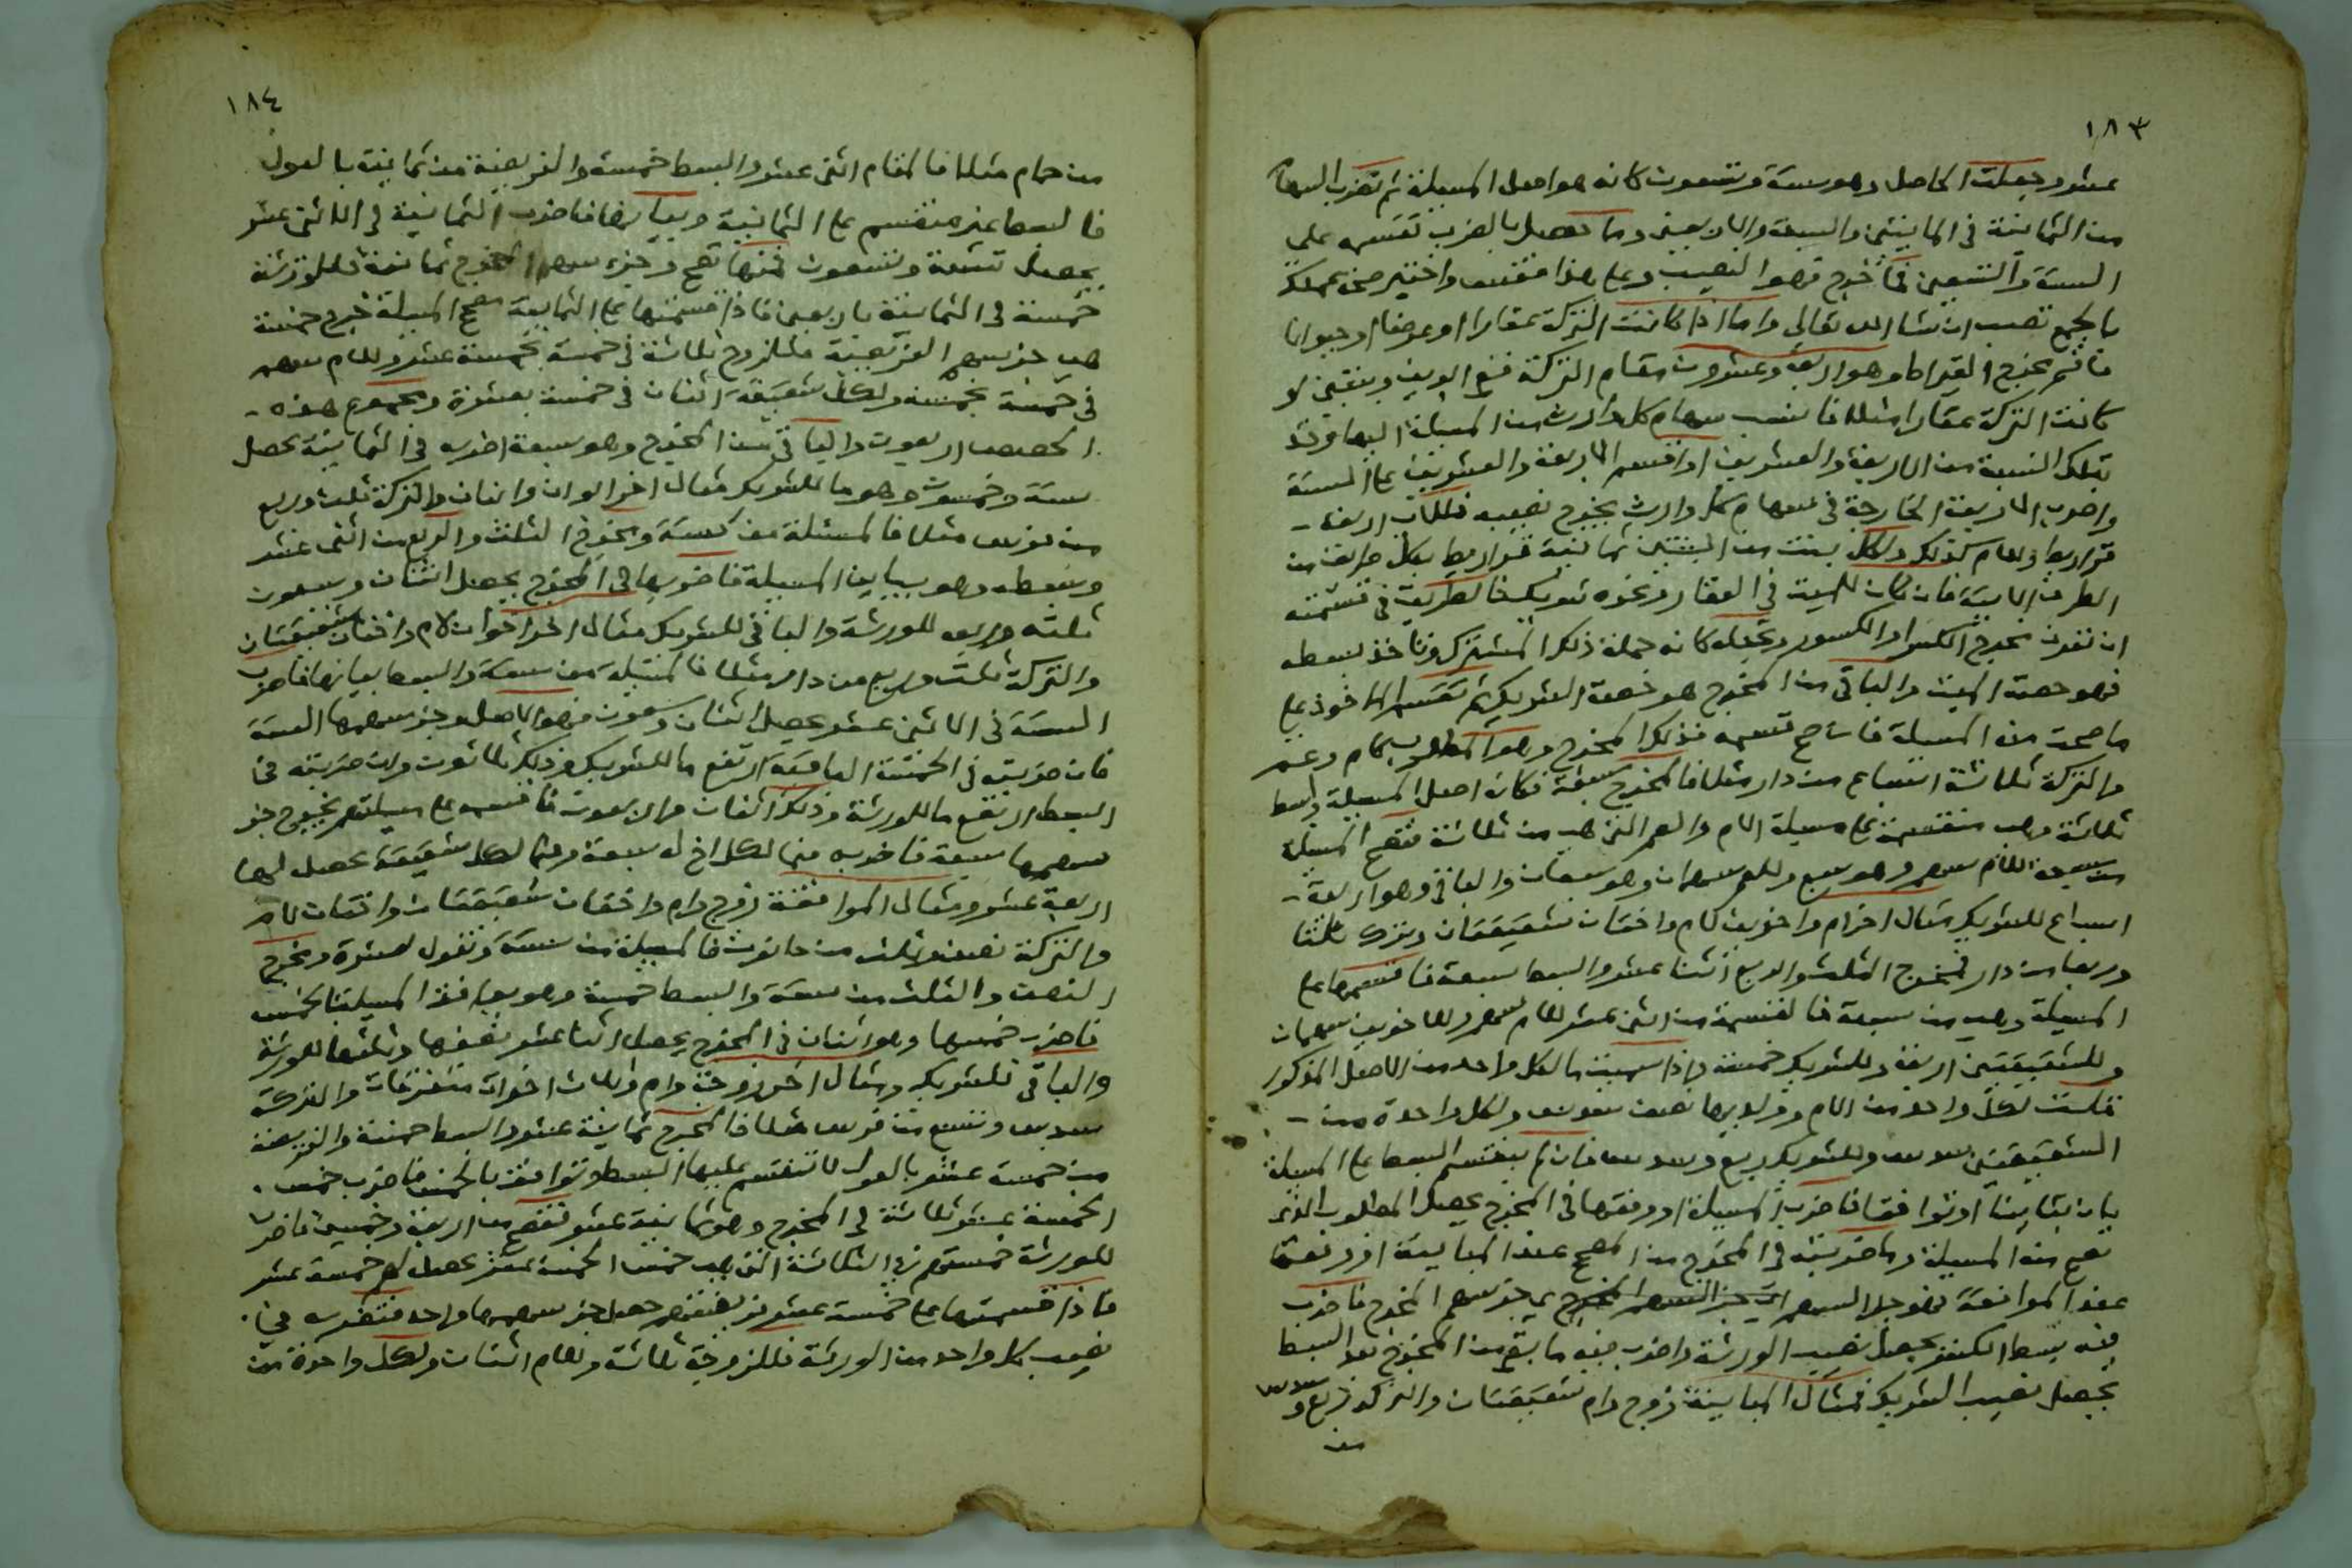 ١٨٣
عشر وجعلت الحاصل وهو ستة وتسعون كانه هو اصل المسيلة ثم تضرب السهام
من الثمانية في المايتين والسبعة والاربعين وما تحصل بالضرب تقسمه على
الستة والتسعين فما خرج فهو النصيب وعلى هذا فقس واختبر صحة عملك
بالجمع تصب ان شا الله تعالى واما اذا كانت التركة عقارا او عرضا او حيوانا
فاقم مخرج القيراط وهو اربعة وعشرون مقام التركة
كانت التركة عقارا مثلا فانسب سهام كل وارث من المسيلة اليها وخذ
بتلك النسبة من الاربعة والعشرين او اقسم الاربعة والعشرين على الستة
واضرب الاربعة الخارجة في سهام كل وارث يخرج نصيبه فللاب اربعة
قراريط وللام كذلك ولكل بنت من البنتين ثمانية قراريط بكل طريق من
الطرق الاتية فان كان للميت في العقار ونحوه شريك فالطريق في قسمته
ان تعرف مخرج الكسر او الكسور وتجعله كانه جملة ذلك المشترك وتاخذ بسطه
فهو حصة الميت والباقي من المخرج هو حصة الشريك ثم تقسم الماخوذ على
ما صحت منه المسيلة فان صح قسمه فذلك المخرج وهو المطلوب كام وعم
والتركة ثلاثة اسباع من دار مثلا فالمخرج سبعة فكان اصل المسيلة والبسط
ثلاثة وهي منقسمة على مسيلة الام والعم التي هي من ثلاثة فتصح المسيلة
من سبعة للام سهم وهو سبع وللعم سهمان وهو سبعان والباقي وهو اربعة
اسباع للشريك مثال اخر ام واخوين لام واختان شقيقتان وترك ثلثا
وربعا من دار فمخرج الثلث والربع اثنا عشر والبسط سبعة فاقسمها على
المسيلة وهي من سبعة فالقسمة من اثني عشر للام سهم وللاخوين سهمان
وللشقيقتين اربعة وللشريك خمسة واذا نسبت ما لكل واحد من الاصل المذكور
قلت لكل واحد من الام وولديها نصف سدس ولكل واحدة من
الشقيقتين سدس وللشريك ربع وسدس فان لم ينقسم البسط على المسيلة
بان تباينا او توافقا فاضرب المسيلة او وفقها في المخرج يحصل المطلوب الذي
تصح منه المسيلة وما ضربته في المخرج من المصحح عند المباينة او وفقها
عند الموافقة فهو جزء السهم اي جزء سهم المخرج فاضرب
فيه بسط الكسر يحصل نصيب الورثة واضرب فيه ما بقي من المخرج بعد البسط
يحصل نصيب الشريك فمثال المباينة زوج وام وشقيقتان والتركة ربع وسدس
من
١٨٤
من حمام مثلا فالمقام اثني عشر والبسط خمسة والفريضة من ثمانية بالعول
فالبسط غير منقسم على الثمانية ويباينها فاضرب الثمانية في الاثني عشر
يحصل ستة وتسعون فمنها تصح وجزء سهم المخرج ثمانية فللورثة
خمسة في الثمانية باربعين فاذا قسمتها على الثمانية مصحح المسيلة خرج خمسة
هي جزء سهم الفريضة فللزوج ثلاثة في خمسة بخمسة عشر وللام سهم
في خمسة بخمسة ولكل شقيقة اثنان في خمسة بعشرة ومجموع هذه
الحصص اربعون والباقي من المخرج وهو سبعة اضربه في الثمانية يحصل
ستة وخمسون وهو ما للشريك مثال اخر ابوان وابنان والتركة ثلث وربع
من فرس مثلا فالمسئلة من ستة ومخرج الثلث والربع من اثني عشر
وبسطه وهو يباين المسيلة فاضربها في المخرج يحصل اثنان وسبعون
ثلثه وربعه للورثة والباقي للشريك مثال اخر اخوان لام واختان شقيقتان
والتركة ثلث وربع من دار مثلا فالمسيلة من ستة والبسط يباينها فاضرب
الستة في الاثني عشر يحصل اثنان وسبعون فهو الاصل وجزء سهمها الستة
فان ضربته في الخمسة الباقية ارتفع ما للشريك وذلك ثلاثون وان ضربته في
البسط ارتفع ما للورثة وذلك اثنان واربعون فاقسمه على مسيلتهم يخرج جزء
سهمها سبعة فاضربه فيما لكل اخ له سبعة وفيما لكل شقيقة يحصل لها
اربعة عشر ومثال الموافقة زوج وام واختان شقيقتان واختان لام
والتركة نصف وثلث من حانوت فالمسيلة من ستة وتعول لعشرة ومخرج
النصف والثلث من ستة والبسط خمسة وهو يوافق المسيلة بالخمس
فاضرب خمسها وهو اثنان في المخرج يحصل اثنا عشر نصفها وثلثها للورثة
والباقي للشريك ومثال اخر زوجة وام وثلاث اخوات متفرقات والتركة
سدس وتسع من فرس مثلا فالمخرج ثمانية عشر والبسط خمسة والفريضة
من خمسة عشر بالعول لا تنقسم عليها البسط وتوافقه بالخمس فاضرب خمس
الخمسة عشر ثلاثة في المخرج وهو ثمانية عشر تصح من اربعة وخمسين فاضرب
للورثة خمستهم في الثلاثة التي هي خمس الخمسة عشر يحصل لهم خمسة عشر
فاذا قسمتها على خمسة عشر فريضتهم حصل جزء سهمها واحد فتضربه في
نصيب كل واحد من الورثة فللزوجة ثلاثة وللام اثنان ولكل واحدة من